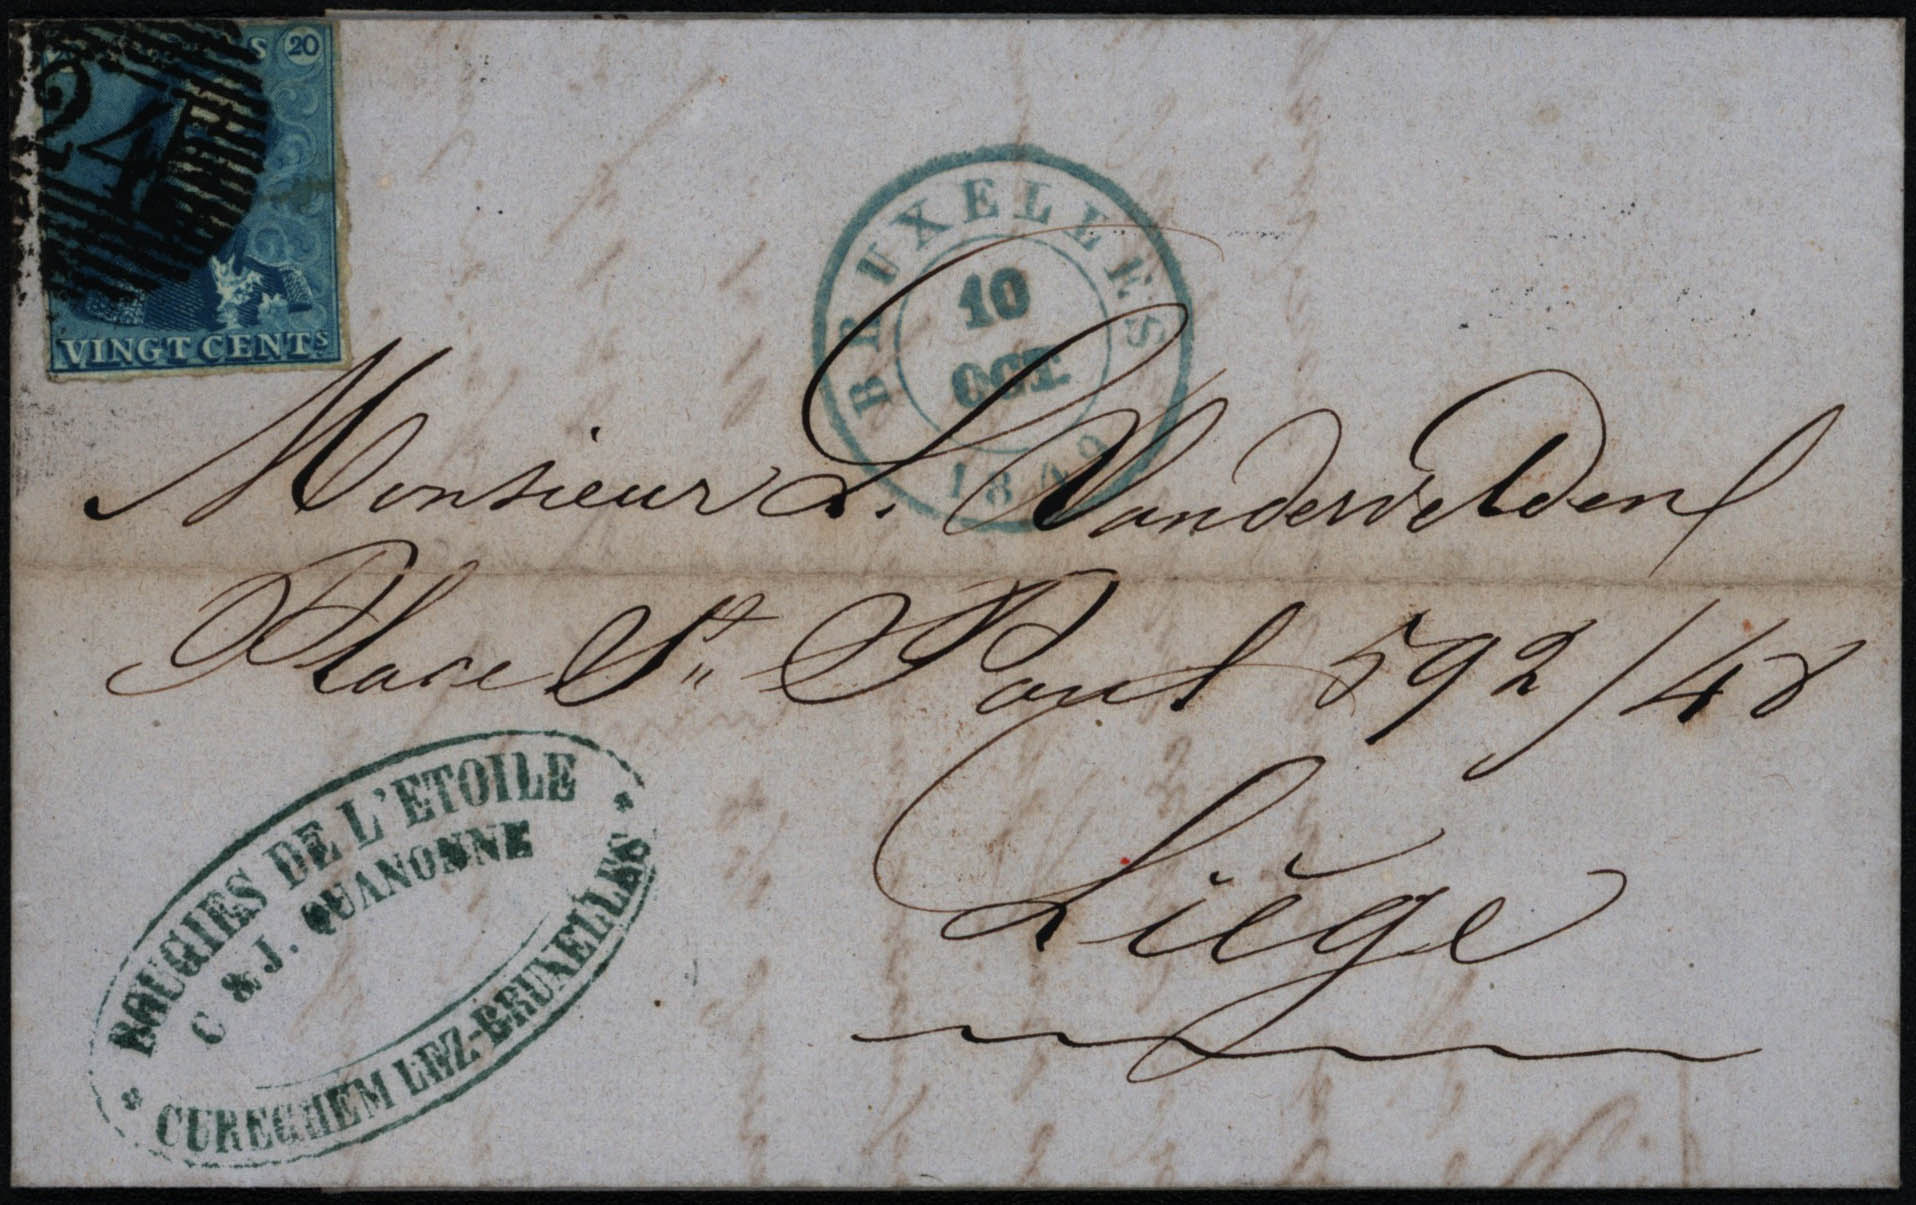 20
24
VINGT CENTS
BRUXELLES
10
OCT.
1849
Monsieur L. Vandervelden
Place St. Paul 592/48
Liège
BOUGIES DE L'ETOILE
C & J. QUANONNE
CUREGHEM LEZ-BRUXELLES